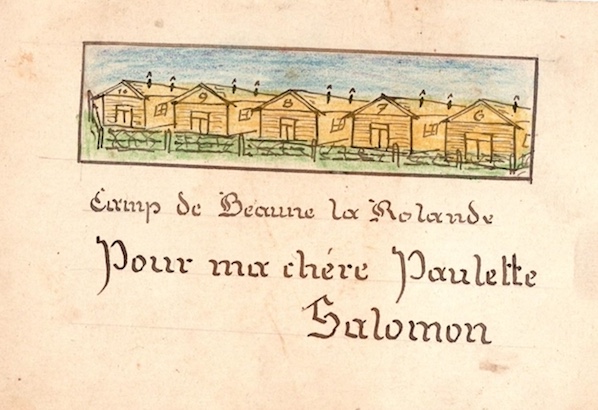 10 9 8 7 6
Camp de Beaune la Rolande
Pour ma chére Paulette
Salomon